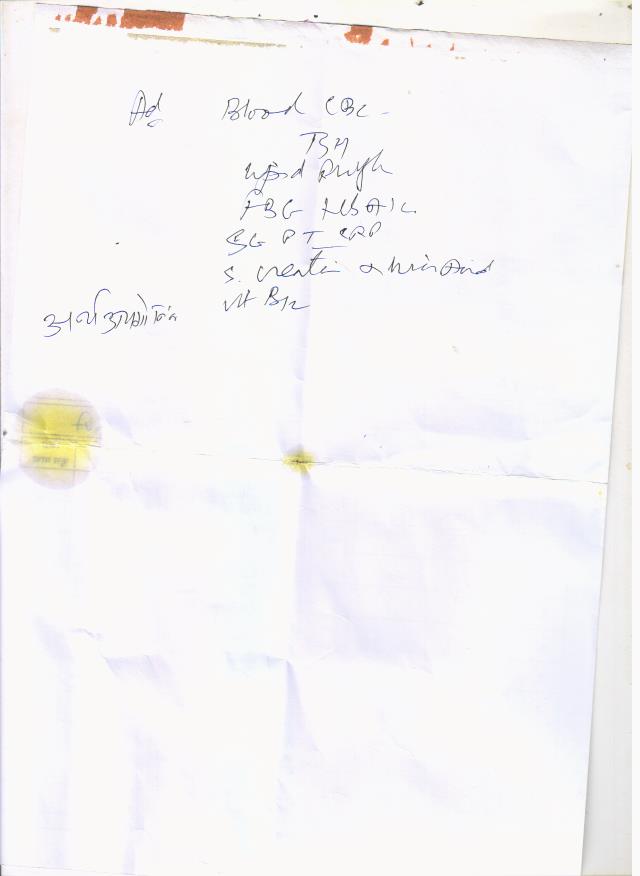 Ad Blood CBC
TSH
Lipid Profile
FBG HbA1C
SGPT CRP
S. Creatin & Uric Acid
Vit B12